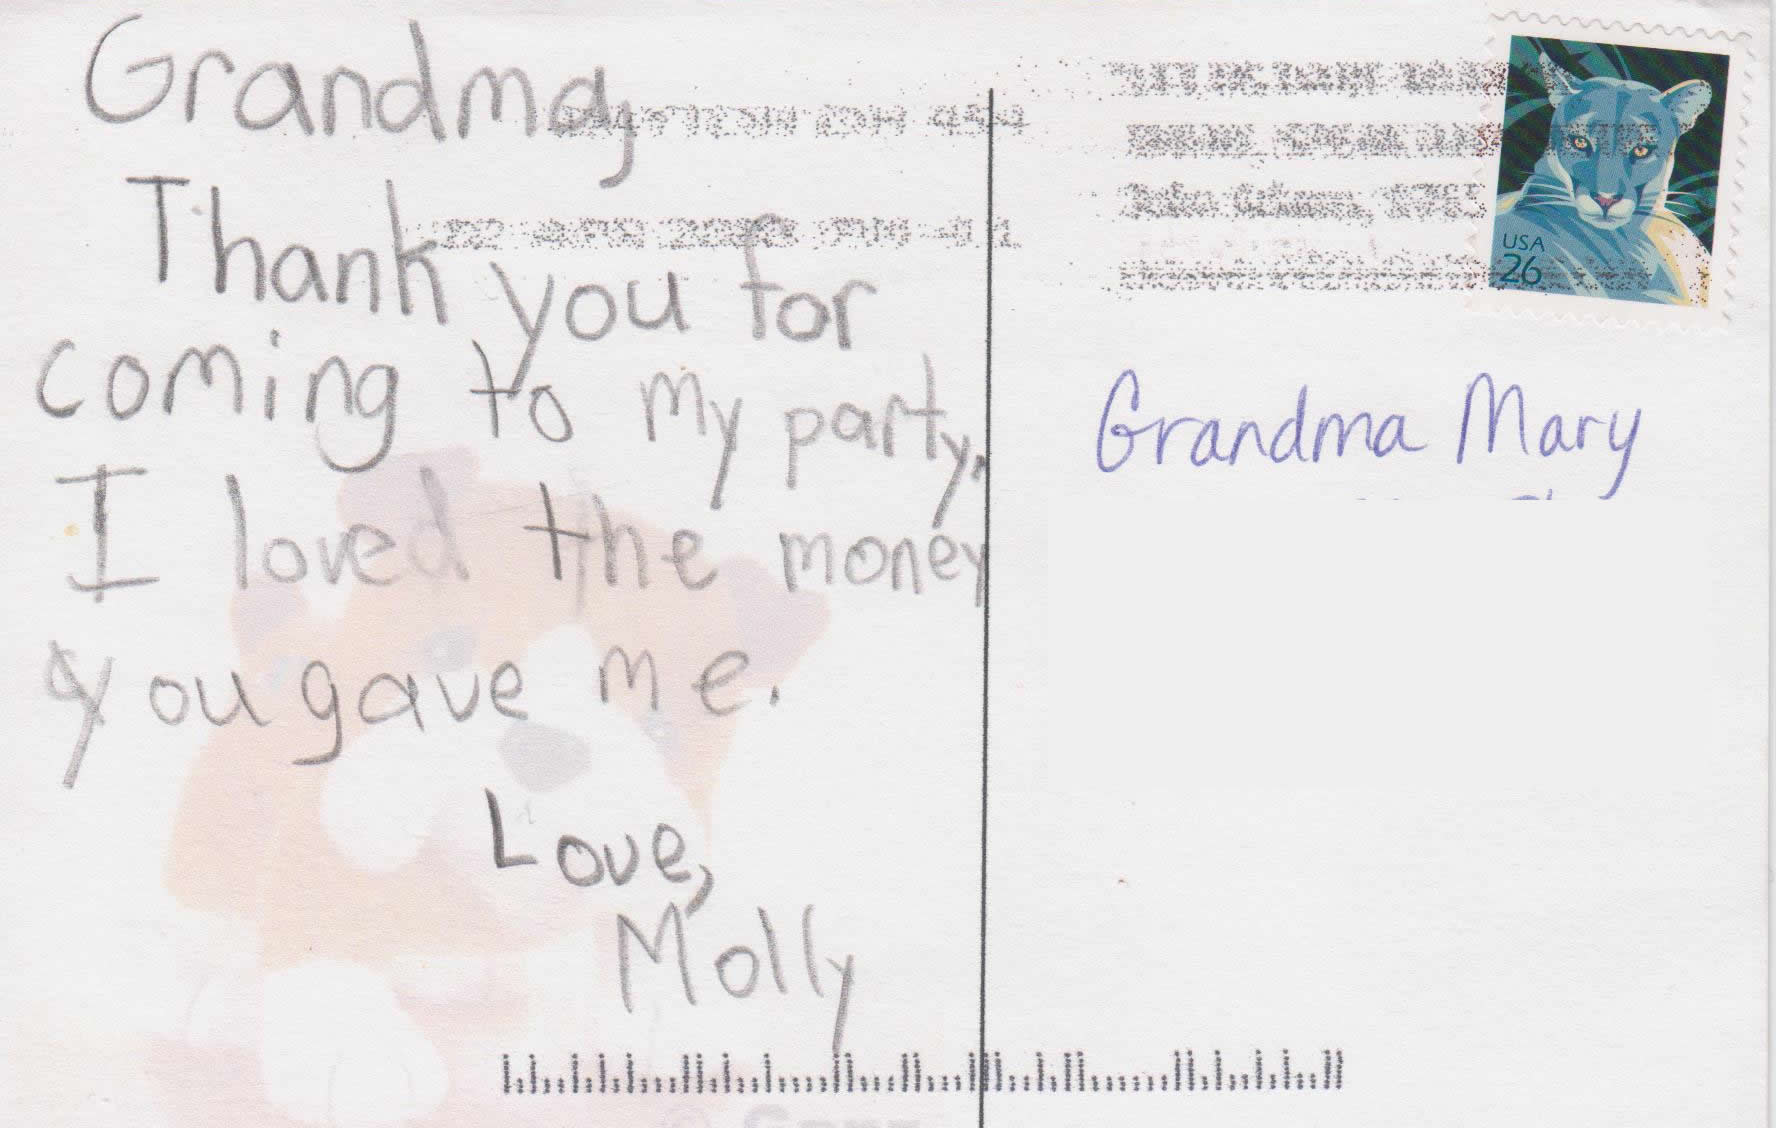 Grandma,
Thank you for
coming to my party.
I loved the money
you gave me.
Love,
Molly
USA
26
Grandma Mary